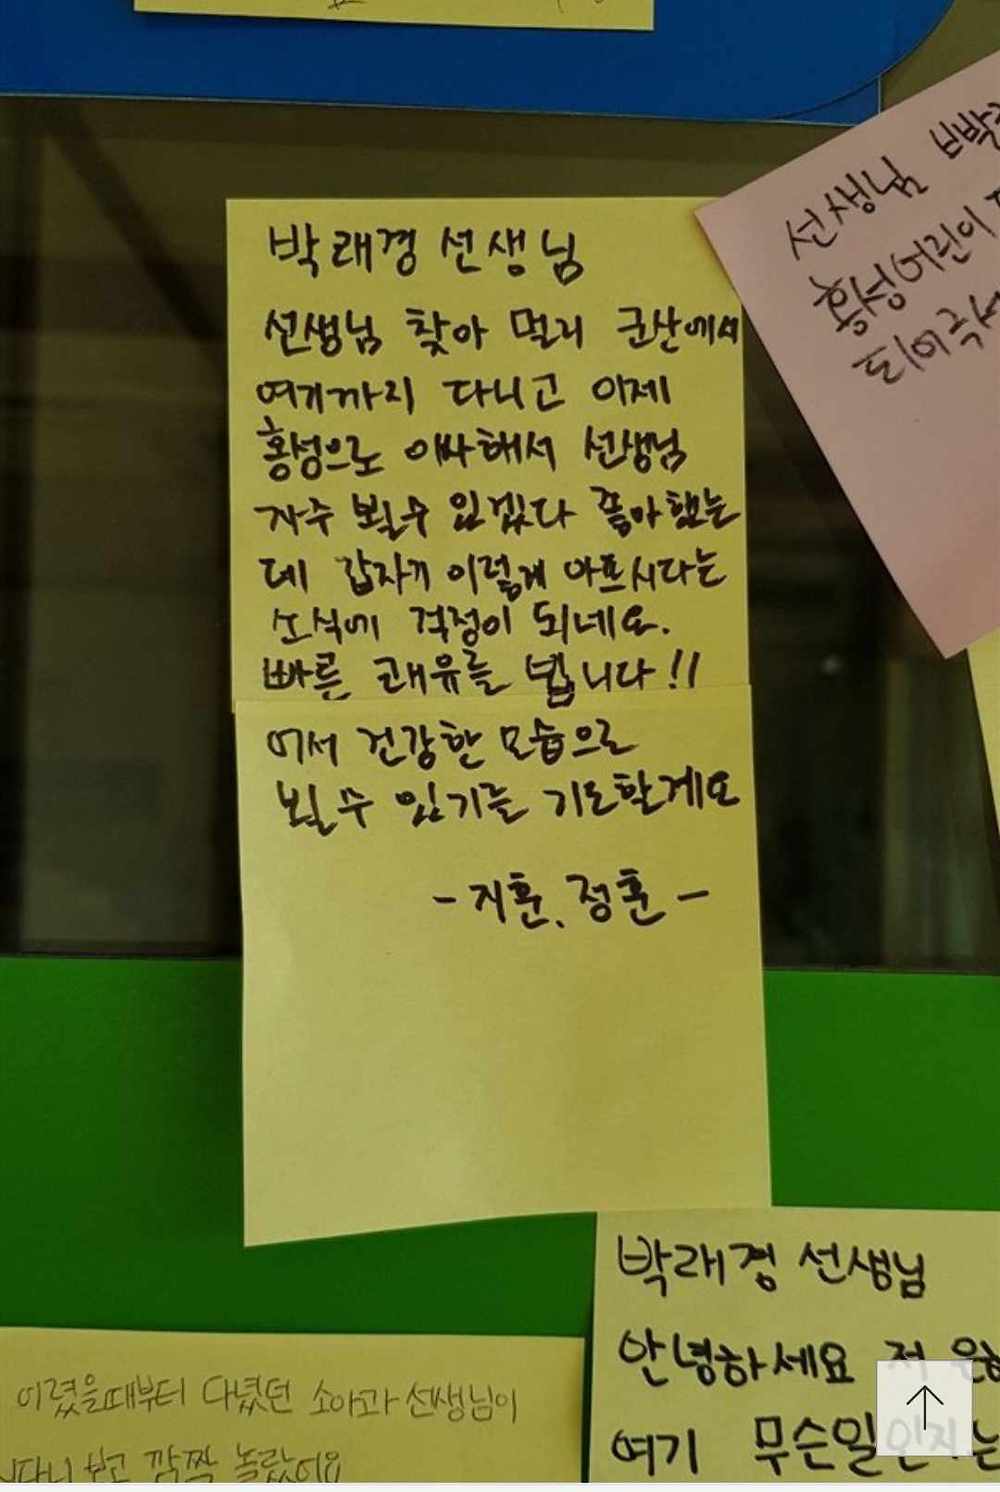 박래경 선생님
선생님 찾아 멀리 군산에서
여기까지 다니고 이제
홍성으로 이사해서 선생님
자주 뵐수 있겠다 좋아했는
데 갑자기 이렇게 아프시다는
소식에 걱정이 되네요.
빠른 쾌유를 빕니다!!
어서 건강한 모습으로
뵐 수 있기를 기도할게요
- 지훈, 정훈 -
선생님
홍성어린이
박래경 선생님
안녕하세요 저
여기 무슨일인지는
이렸을때부터 다녔던 소아과 선생님이
보고 깜짝 놀랐어요